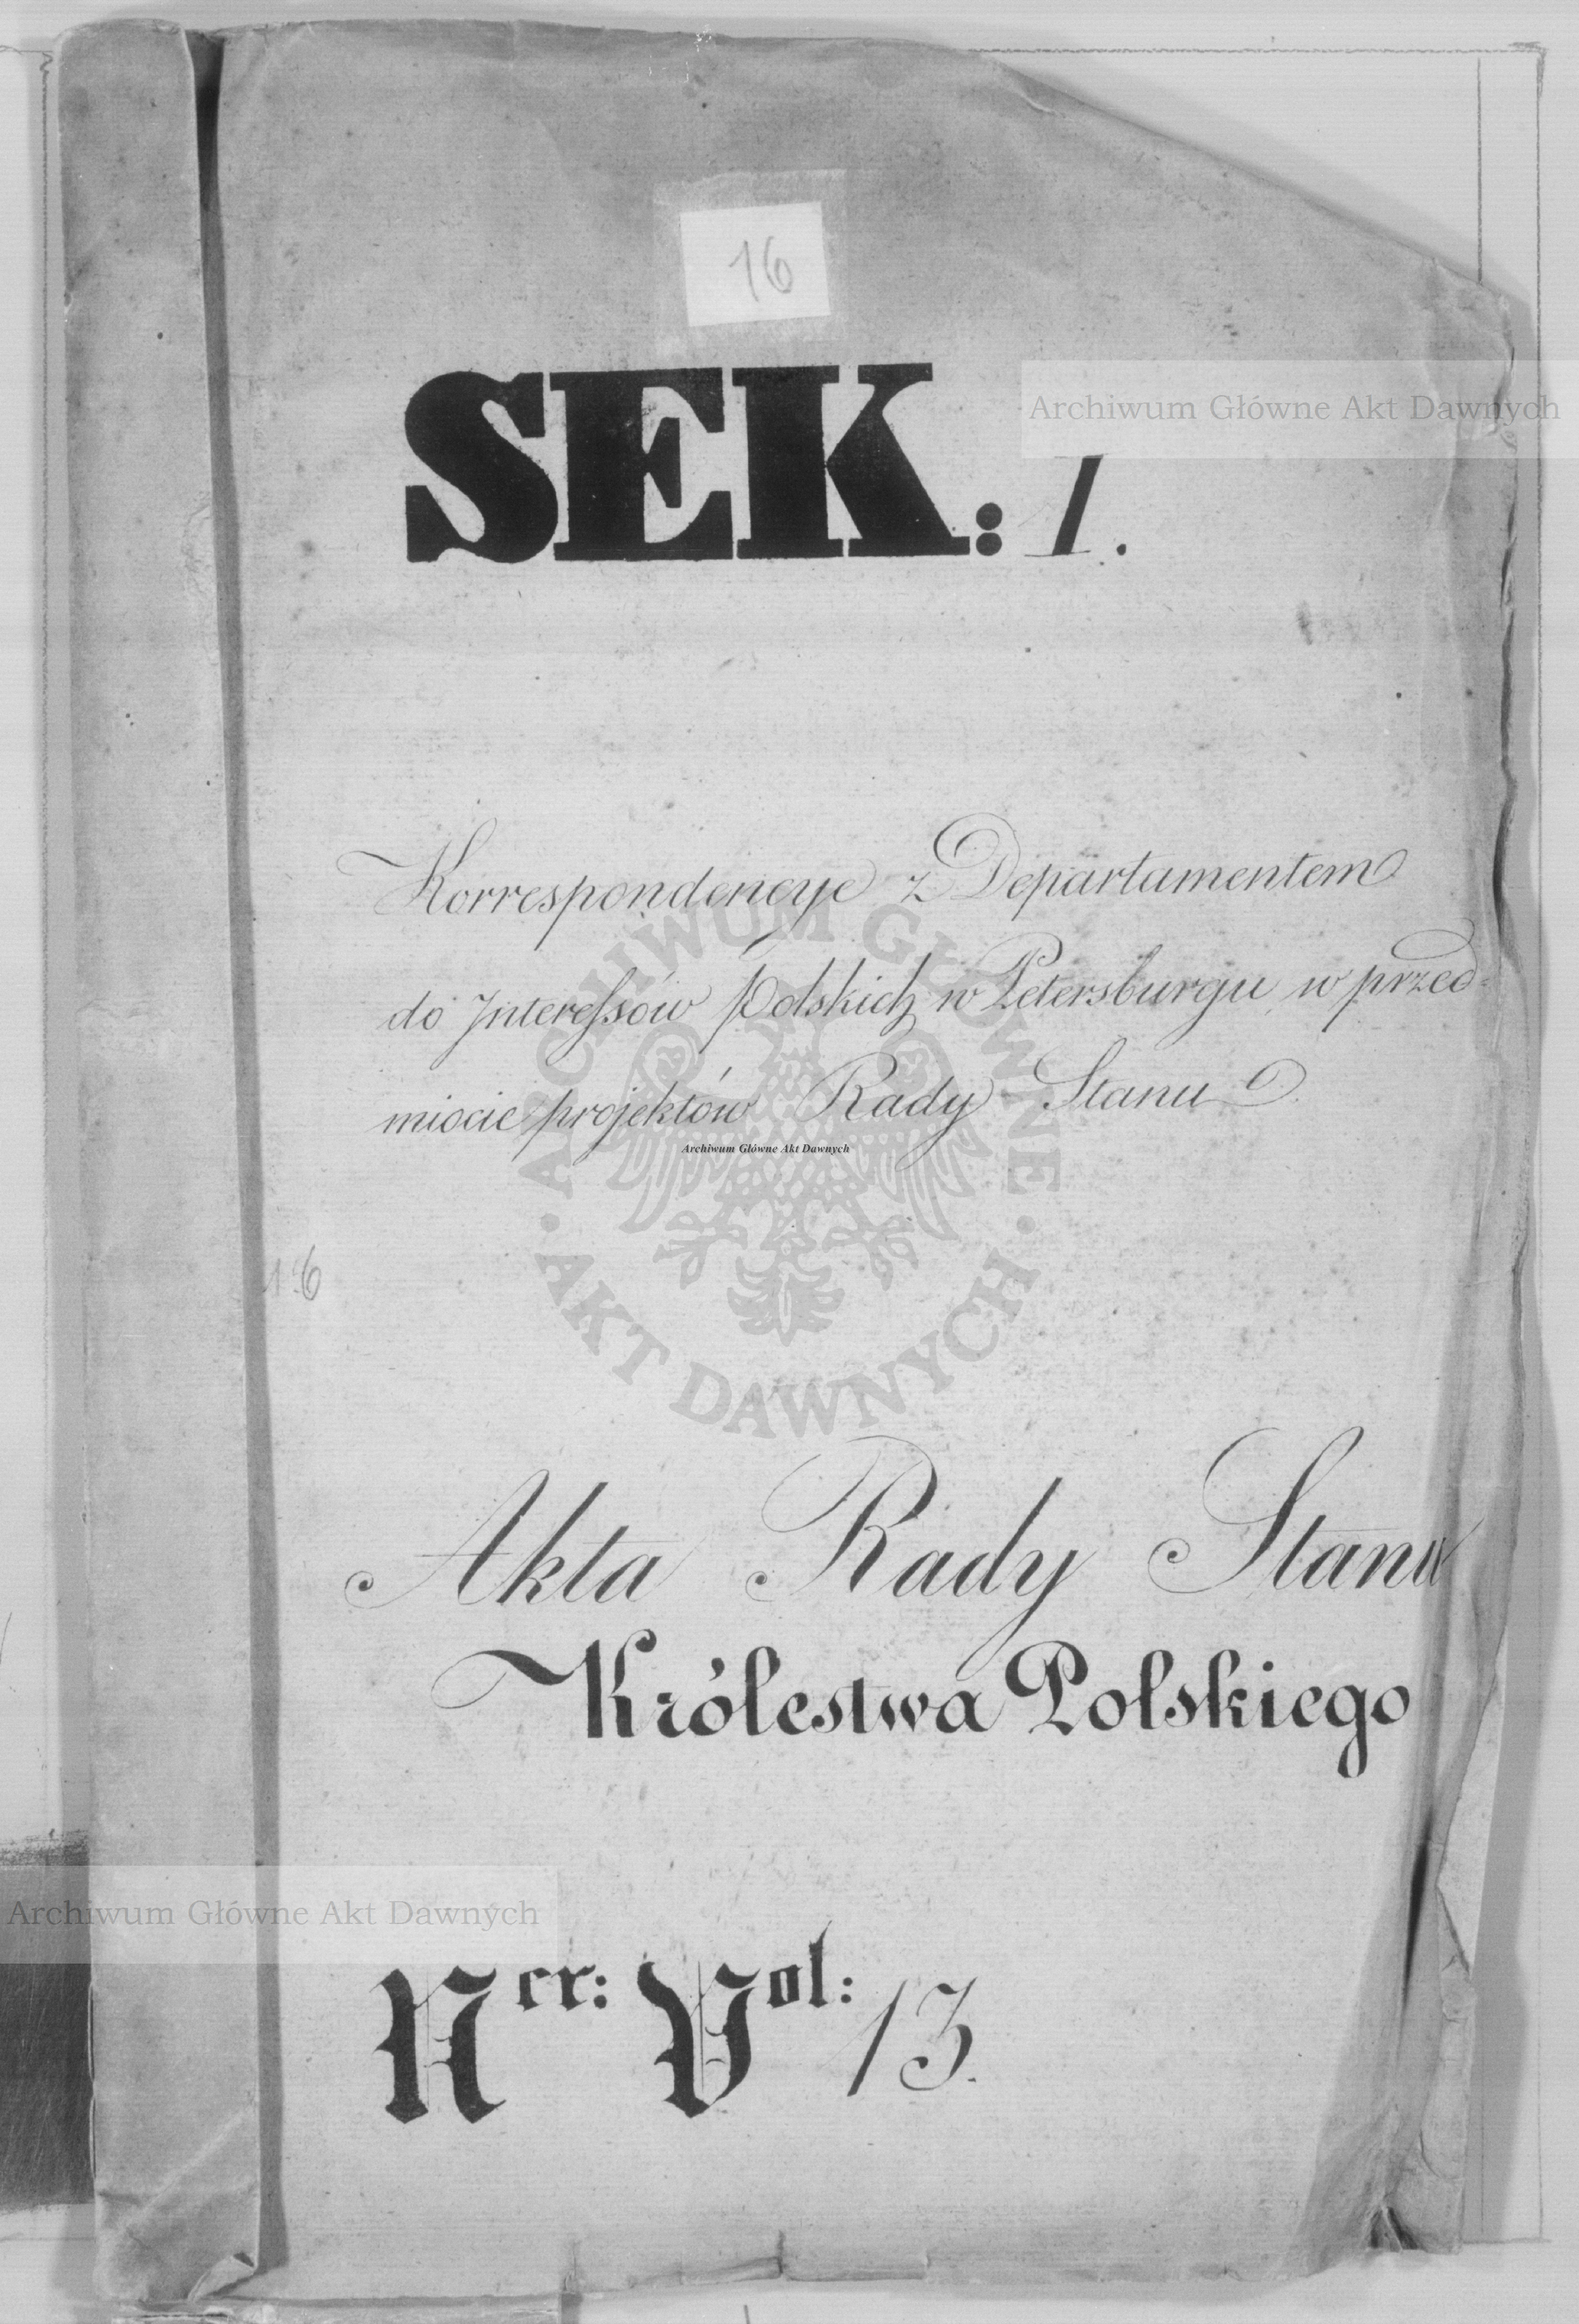 16
SEK: 1.
Archiwum Główne Akt Dawnych
Korrespondencye z Departamentem
do Interessów Polskich w Petersburgu, w przed-
miocie projektów Rady Stanu
Archiwum Główne Akt Dawnych
ARCHIWUM GŁÓWNE
· AKT DAWNYCH ·
16
Akta Rady Stanu
Królestwa Polskiego
Archiwum Główne Akt Dawnych
Ner: Vol: 13.